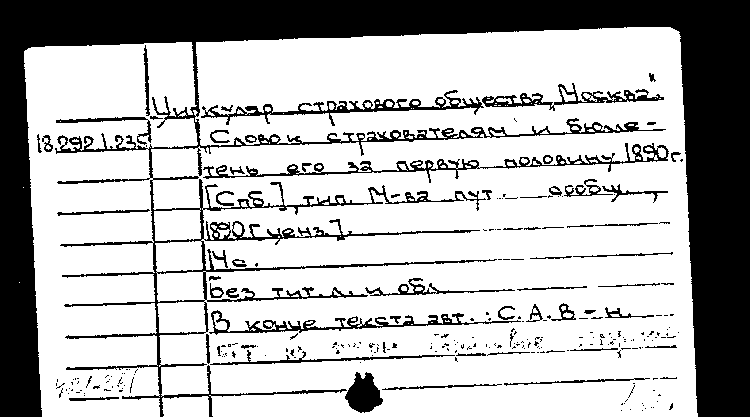 Циркуляр страхового общества „Москва".
18.292.1.235 „Слово к страхователям и бюлле-
тень его за первую половину 1890 г.
[Спб.], тип. М-ва пут. сообщ.,
1890 [ценз].
14 с.
Без тит. л. и обл.
В конце текста авт.: С. А. В-н.